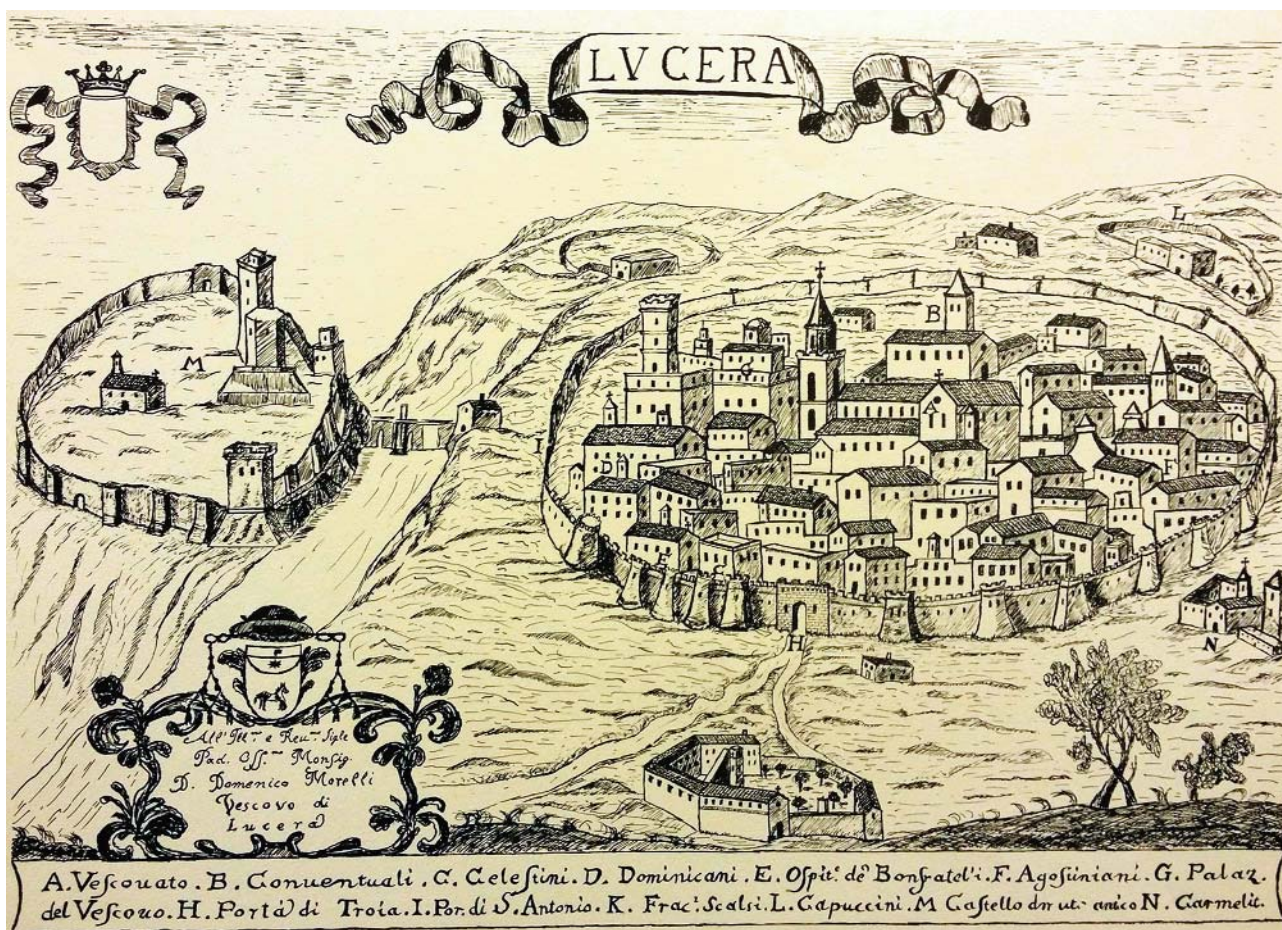 LVCERA
L
B
M
G
A
I
D
F
H
N
All' Ill.mo e Reu.mo Sig.
Pad. Oss.mo Monsig.
D. Domenico Morelli
Vescovo di
Lucera
A. Veſcouato. B. Conuentuali. C. Celeſtini. D. Dominicani. E. Oſpit. de Bonfratel'i. F. Agoſtiniani. G. Palaz.
del Veſcouo. H. Porta di Troia. I. Por. di S. Antonio. K. Frac. Scalsi. L. Capuccini. M Caſtello antico N. Carmelit.